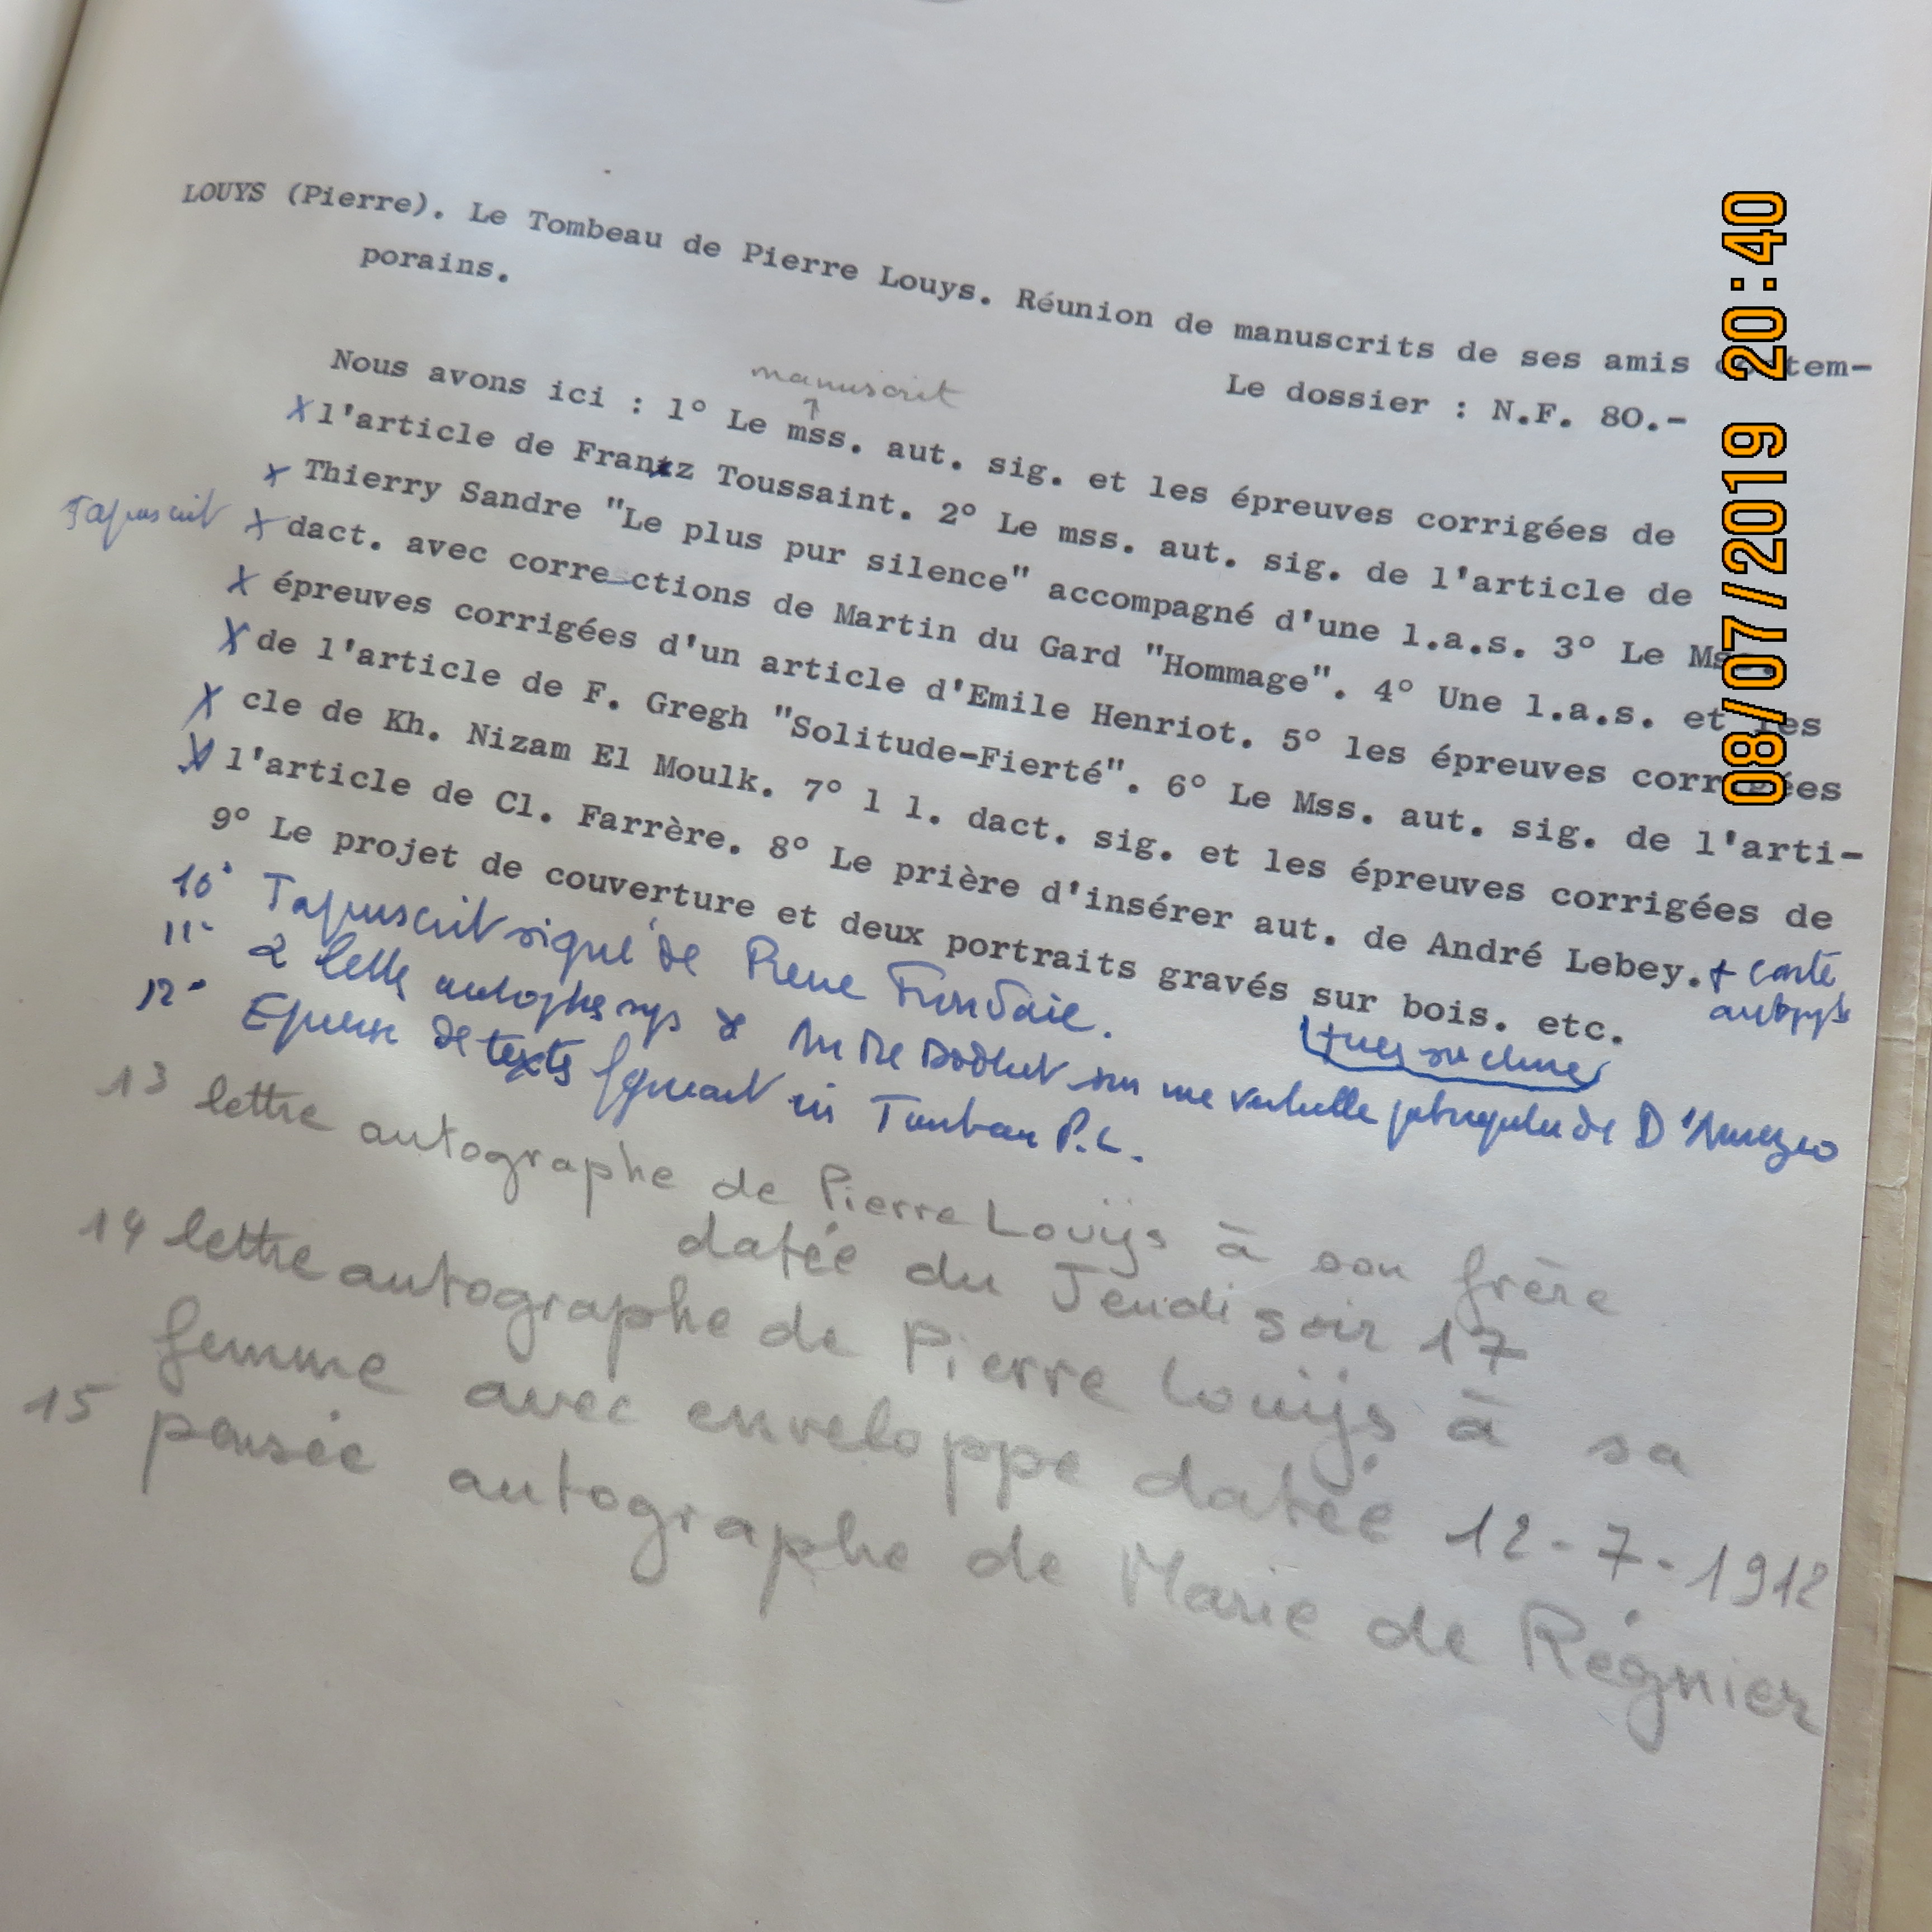 LOUYS (Pierre). Le Tombeau de Pierre Louys. Réunion de manuscrits de ses amis contem-
porains.
Le dossier : N.F. 80.-
manuscrit
Nous avons ici : 1° Le mss. aut. sig. et les épreuves corrigées de
X l'article de Frantz Toussaint. 2° Le mss. aut. sig. de l'article de
X Thierry Sandre "Le plus pur silence" accompagné d'une l.a.s. 3° Le Mss.
Tapuscrit X dact. avec corrections de Martin du Gard "Hommage". 4° Une l.a.s. et les
X épreuves corrigées d'un article d'Emile Henriot. 5° les épreuves corrigées
X de l'article de F. Gregh "Solitude-Fierté". 6° Le Mss. aut. sig. de l'arti-
X cle de Kh. Nizam El Moulk. 7° 1 l. dact. sig. et les épreuves corrigées de
X l'article de Cl. Farrère. 8° Le prière d'insérer aut. de André Lebey. + carte
9° Le projet de couverture et deux portraits gravés sur bois. etc.
10° Tapuscrit signé de
11° 2
12° Epreuve de textes in Tombeau P.L.
13 lettre autographe de Pierre Louÿs à son frère
datée du Jeudi soir 17
14 lettre autographe de Pierre Louijs à sa
femme avec enveloppe datée 12-7-1912
15 pensée autographe de Marie de Régnier
08/07/2019 20:40